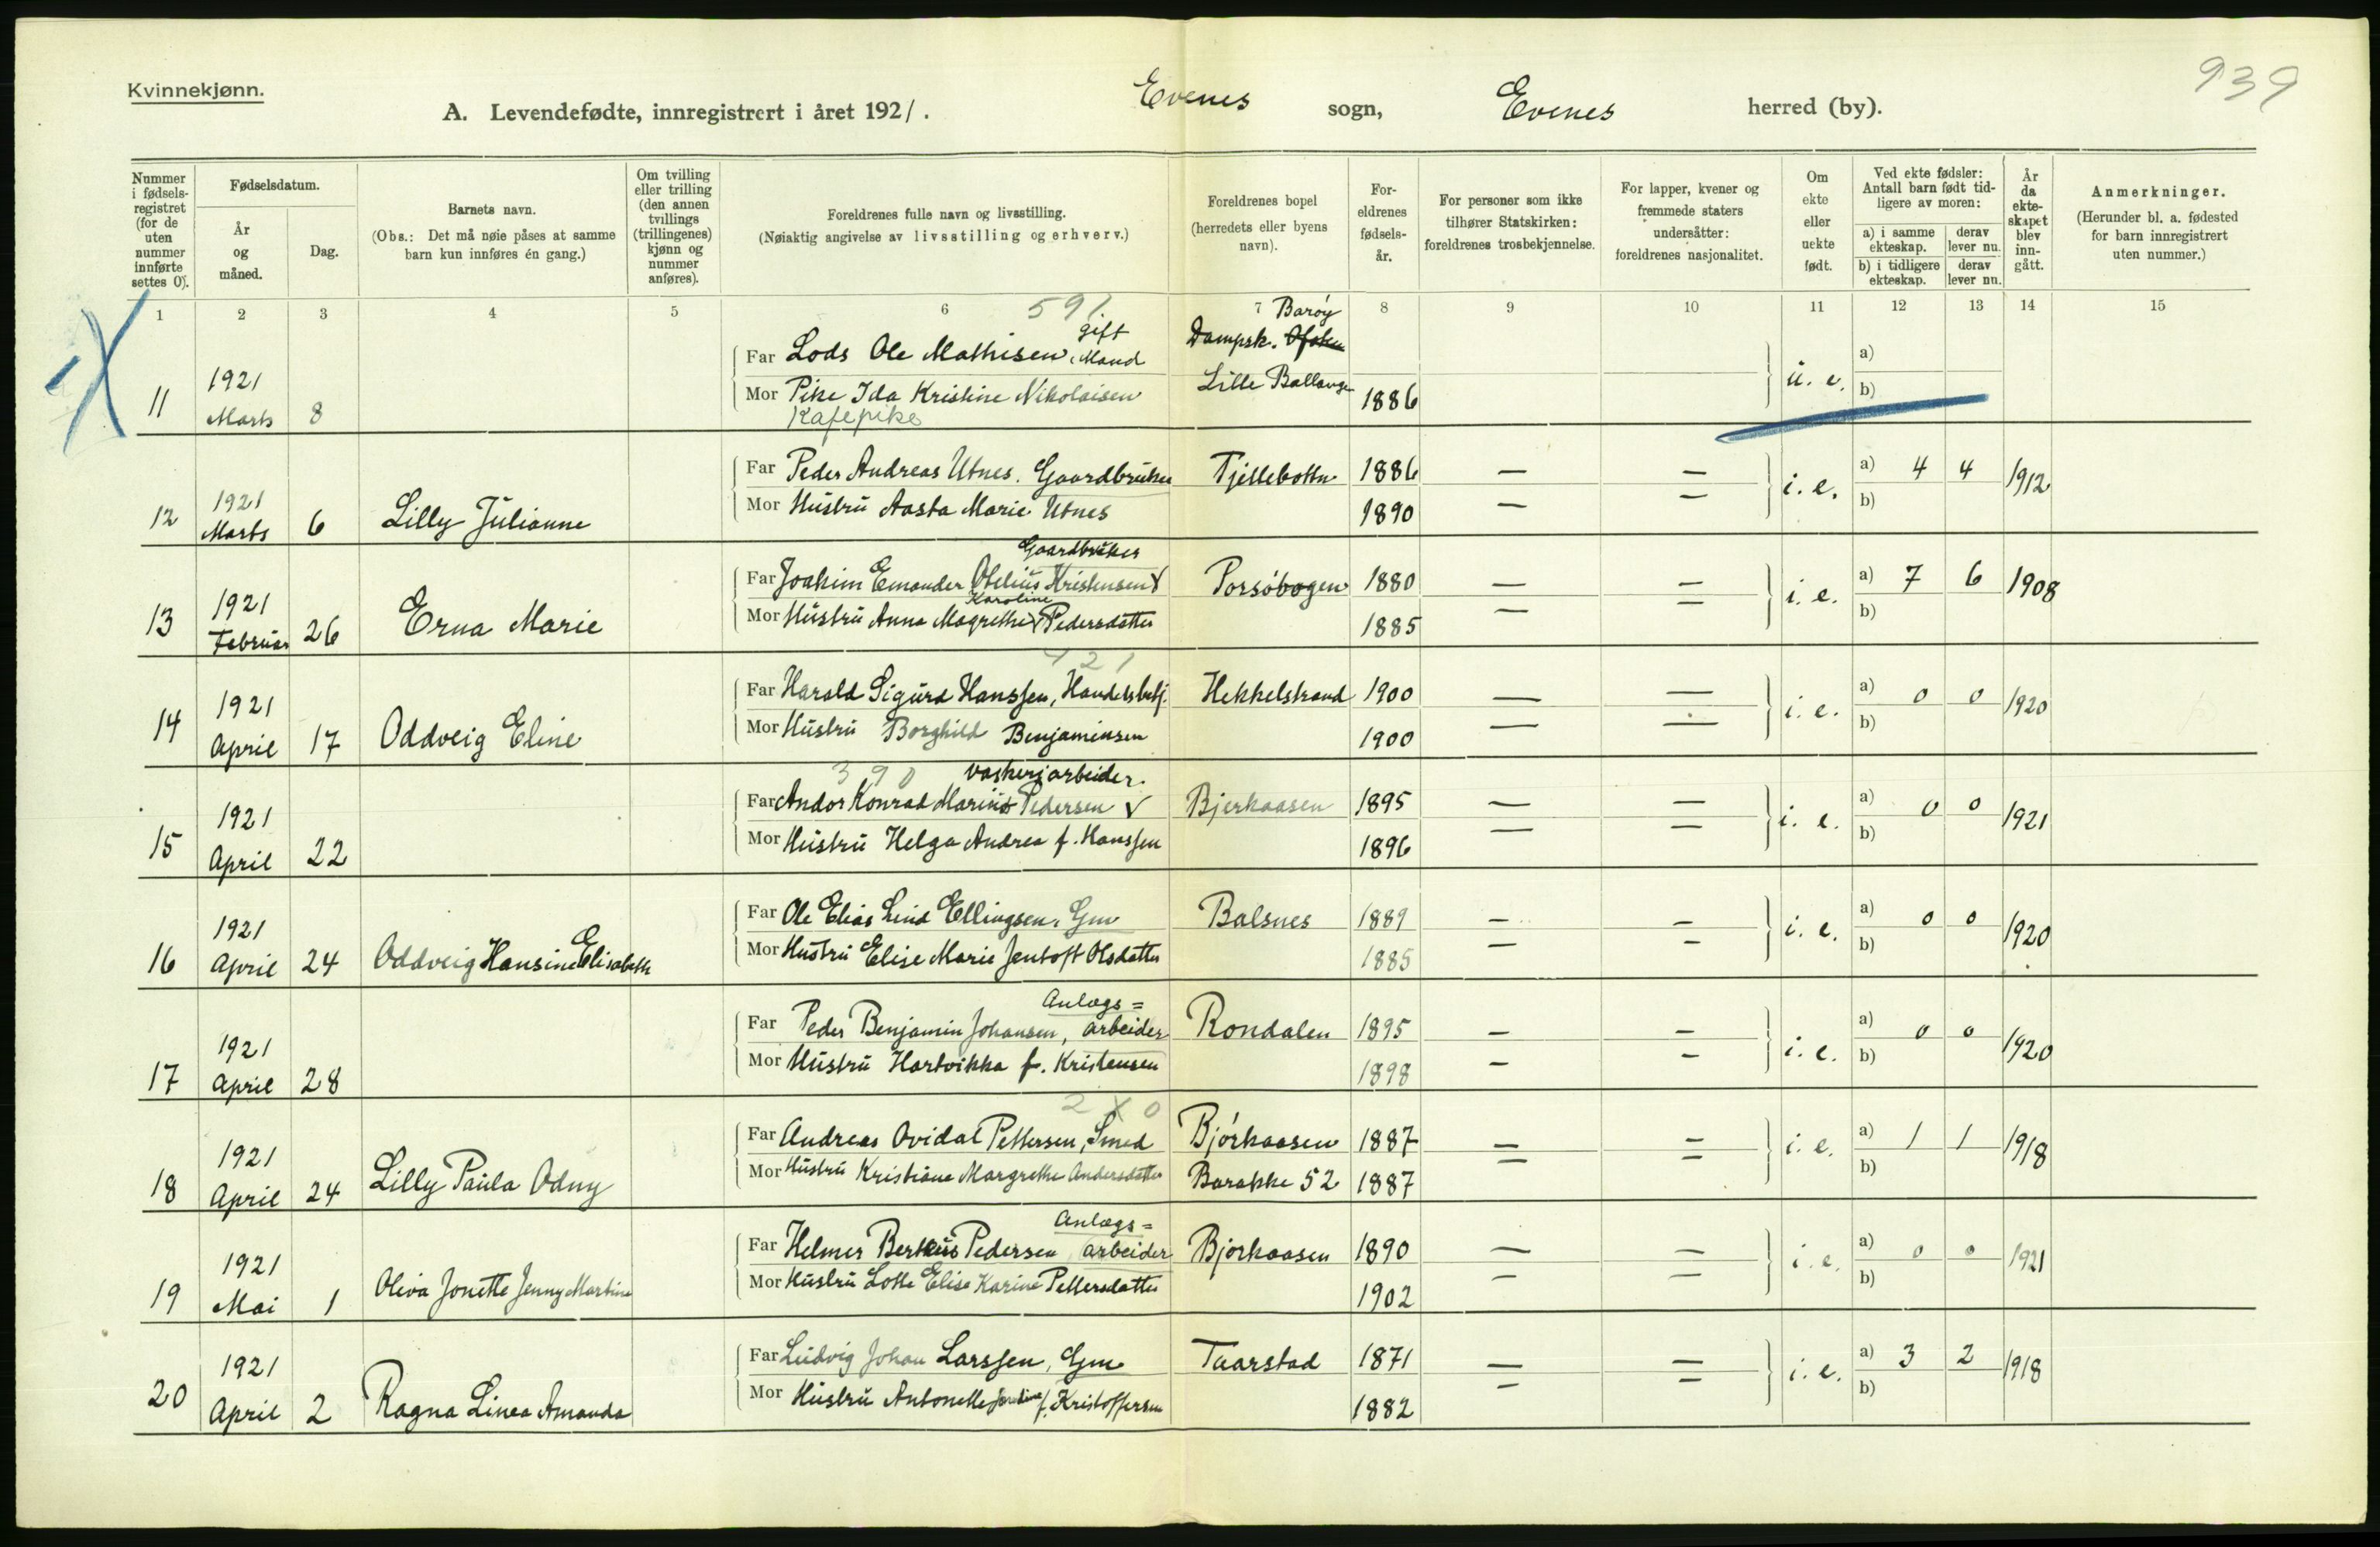 939
Kvinnekjønn.
A. Levendefødte, innregistrert i året 1921. Evenes sogn, Evenes herred (by).
Nummer i fødsels-registret (for de uten nummer innførte settes 0).
Fødselsdatum.
År og måned.
Dag.
Barnets navn.
(Obs.: Det må nøie påses at samme barn kun innføres én gang.)
Om tvilling eller trilling (den annen tvillings (trillingenes) kjønn og nummer anføres).
Foreldrenes fulle navn og livsstilling.
(Nøiaktig angivelse av livsstilling og erhverv.)
Foreldrenes bopel (herredets eller byens navn).
For-eldrenes fødsels-år.
For personer som ikke tilhører Statskirken: foreldrenes trosbekjennelse.
For lapper, kvener og fremmede staters undersåtter: foreldrenes nasjonalitet.
Om ekte eller uekte født.
Ved ekte fødsler: Antall barn født tid-ligere av moren:
a) i samme ekteskap. derav lever nu.
b) i tidligere ekteskap. derav lever nu.
År da ekte-skapet blev inn-gått.
Anmerkninger.
(Herunder bl. a. fødested for barn innregistrert uten nummer.)
1 2 3 4 5 6 7 8 9 10 11 12 13 14 15
591
gift Barøy
Far Lods Ole Mathisen, Mand Dampsk. Ofoten a)
11 1921 Marts 8 Mor Pike Ida Kristine Nikolaisen Lille Ballangen 1886 u. e. b)
Kafepike
Far Peder Andreas Utnes. Gaardbruker Tjellebotn 1886 — — i. e. a) 4 4 1912
12 1921 Marts 6 Lilly Julianne Mor Hustru Aasta Marie Utnes 1890 — — b)
Gaardbruker
Far Joakim Emander Otelius Kristensen Porsöbogen 1880 — — i. e. a) 7 6 1908
Karoline
13 1921 Februar 26 Erna Marie Mor Hustru Anna Magrethe Pedersdatter 1885 — — b)
421
Far Harald Sigurd Hanssen, Handelsbetj. Hekkelstrand 1900 — — i. e. a) 0 0 1920
14 1921 April 17 Oddveig Eline Mor Hustru Borghild Benjaminsen 1900 — — b)
390 vaskeriarbeider.
Far Andor Konrad Marius Pedersen Bjerkaasen 1895 — — i. e. a) 0 0 1921
15 1921 April 22 Mor Hustru Helga Andrea f. Hanssen 1896 — — b)
Far Ole Elias Lind Ellingsen, Gm Balsnes 1889 — — i. e. a) 0 0 1920
16 1921 April 24 Oddveig Hansine Elisabeth Mor Hustru Elise Marie Jentoft Olsdatter 1885 — — b)
Anlægs=
Far Peder Benjamin Johansen, arbeider Rondalen 1895 — — i. e. a) 0 0 1920
17 1921 April 28 Mor Hustru Hartvikka f. Kristensen 1898 — — b)
2 X 0
Far Andreas Ovidal Pettersen, Smed Bjórkaasen 1887 — — i. e. a) 1 1 1918
18 1921 April 24 Lilly Paula Odny Mor Hustru Kristiane Margrethe Andersdatter Barakke 52 1887 — — b)
Anlægs=
Far Helmer Berteus Pedersen arbeider Bjorkaasen 1890 — — i. e. a) 0 0 1921
19 1921 Mai 1 Oliva Jonette Jenny Martine Mor Hustru Lotte Elise Karine Pettersdatter 1902 — — b)
Far Ludvig Johan Larssen, Gm Taarstad 1871 — — i. e. a) 3 2 1918
20 1921 April 2 Ragna Linea Amanda Mor Hustru Antonette f. Kristoffersen 1882 — — b)